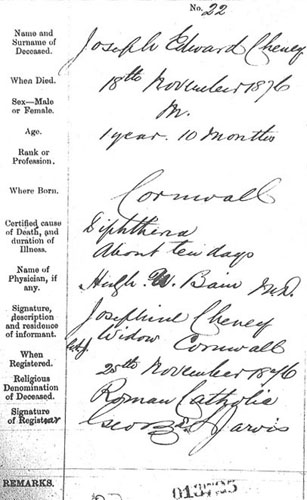 No. 22
Name and Surname of Deceased. Joseph Edward Cheney
When Died. 18th November 1876
Sex—Male or Female. M.
Age. 1 year. 10 months
Rank or Profession.
Where Born. Cornwall
Certified cause of Death, and duration of Illness. Diphtheria
About ten days
Name of Physician, if any. Hugh W. Bain M.D.
Signature, description and residence of informant. Josephine Cheney
Widow Cornwall
When Registered. 25th November 1876
Religious Denomination of Deceased. Roman Catholic
Signature of Registrar George S. Jarvis
REMARKS.
013735